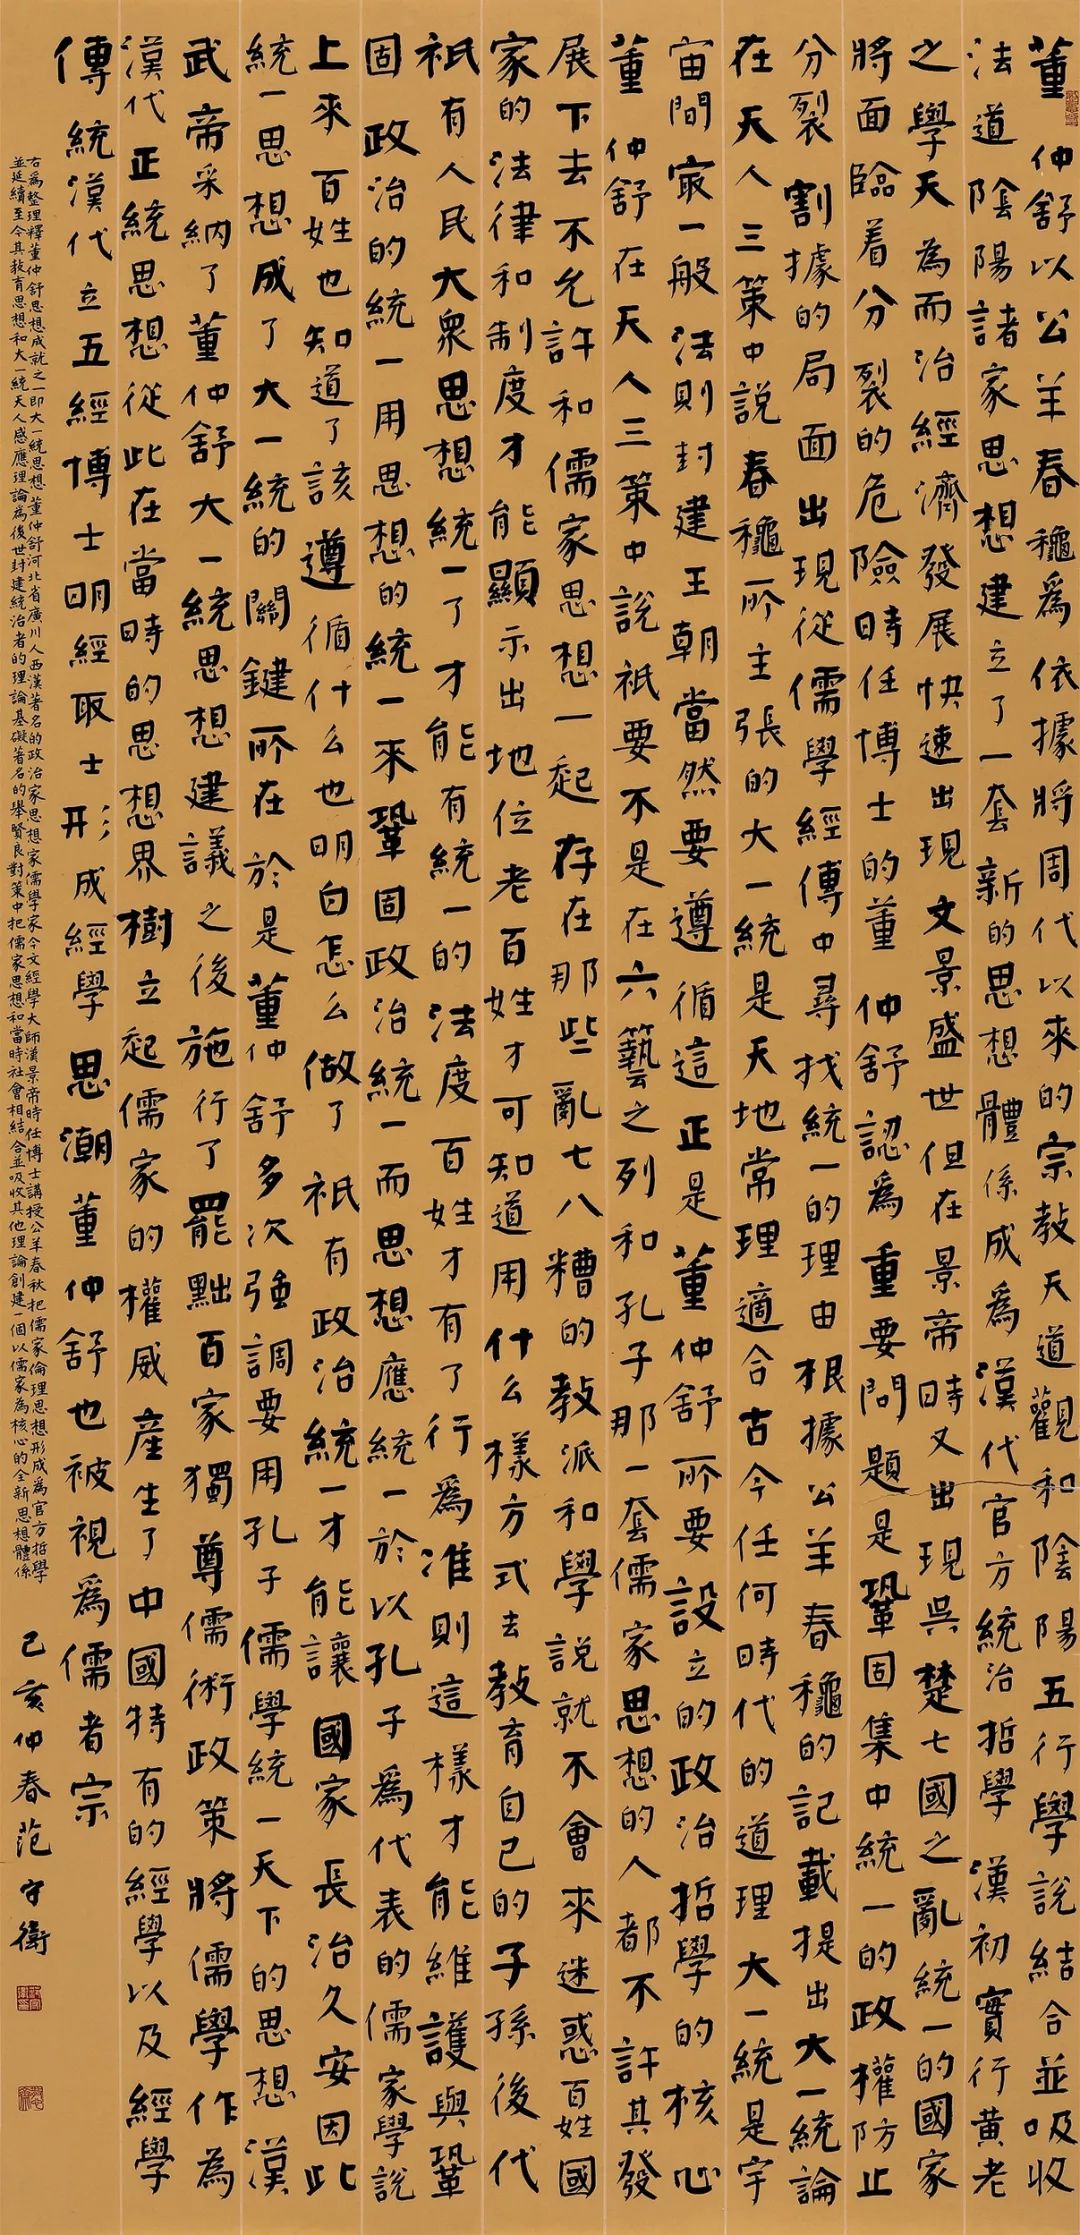 董仲舒以公羊春龝爲依據將周代以來的宗教天道觀和陰陽五行學說結合並吸收
法道陰陽諸家思想建立了一套新的思想體係成爲漢代官方統治哲學漢初實行黄老
之學天為而治經濟發展快速出現文景盛世但在景帝時又出現吳楚七國之亂統一的國家
將面臨着分裂的危險時任博士的董仲舒認爲重要問題是鞏固集中統一的政權防止
分裂割據的局面出現從儒學經傳中尋找統一的理由根據公羊春龝的記載提出大一統論
在天人三策中說春龝所主張的大一統是天地常理適合古今任何時代的道理大一統是宇
宙間冣一般法則封建王朝當然要遵循這正是董仲舒所要設立的政治哲學的核心
董仲舒在天人三策中說祇要不是在六藝之列和孔子那一套儒家思想的人都不許其發
展下去不允許和儒家思想一起存在那些亂七八糟的教派和學說就不會來迷惑百姓國
家的法律和制度才能顯示出地位老百姓才可知道用什么樣方式去教育自己的子孫後代
祇有人民大衆思想統一了才能有統一的法度百姓才有了行爲准則這樣才能維護與鞏
固政治的統一用思想的統一來鞏固政治統一而思想應統一於以孔子爲代表的儒家學說
上來百姓也知道了該遵循什么也明白怎么做了祇有政治統一才能讓國家長治久安因此
統一思想成了大一統的關鍵所在於是董仲舒多次强調要用孔子儒學統一天下的思想漢
武帝采納了董仲舒大一統思想建議之後施行了罷黜百家獨尊儒術政策將儒學作為
漢代正統思想從此在當時的思想界樹立起儒家的權威産生了中國特有的經學以及經學
傳統漢代立五經博士明經取士形成經學思潮董仲舒也被視爲儒者宗
右爲整理釋董仲舒思想成就之一即大一統思想董仲舒河北省廣川人西漢著名的政治家思想家儒學家今文經學大師漢景帝時任博士講授公羊春秋把儒家倫理思想形成爲官方哲學
並延續至今其教育思想和大一統天人感應理論為後世封建統治者的理論基礎著名的舉賢良對策中把儒家思想和當時社會相結合並吸收其他理論創建一個以儒家為核心的全新思想體係
己亥仲春范守衛